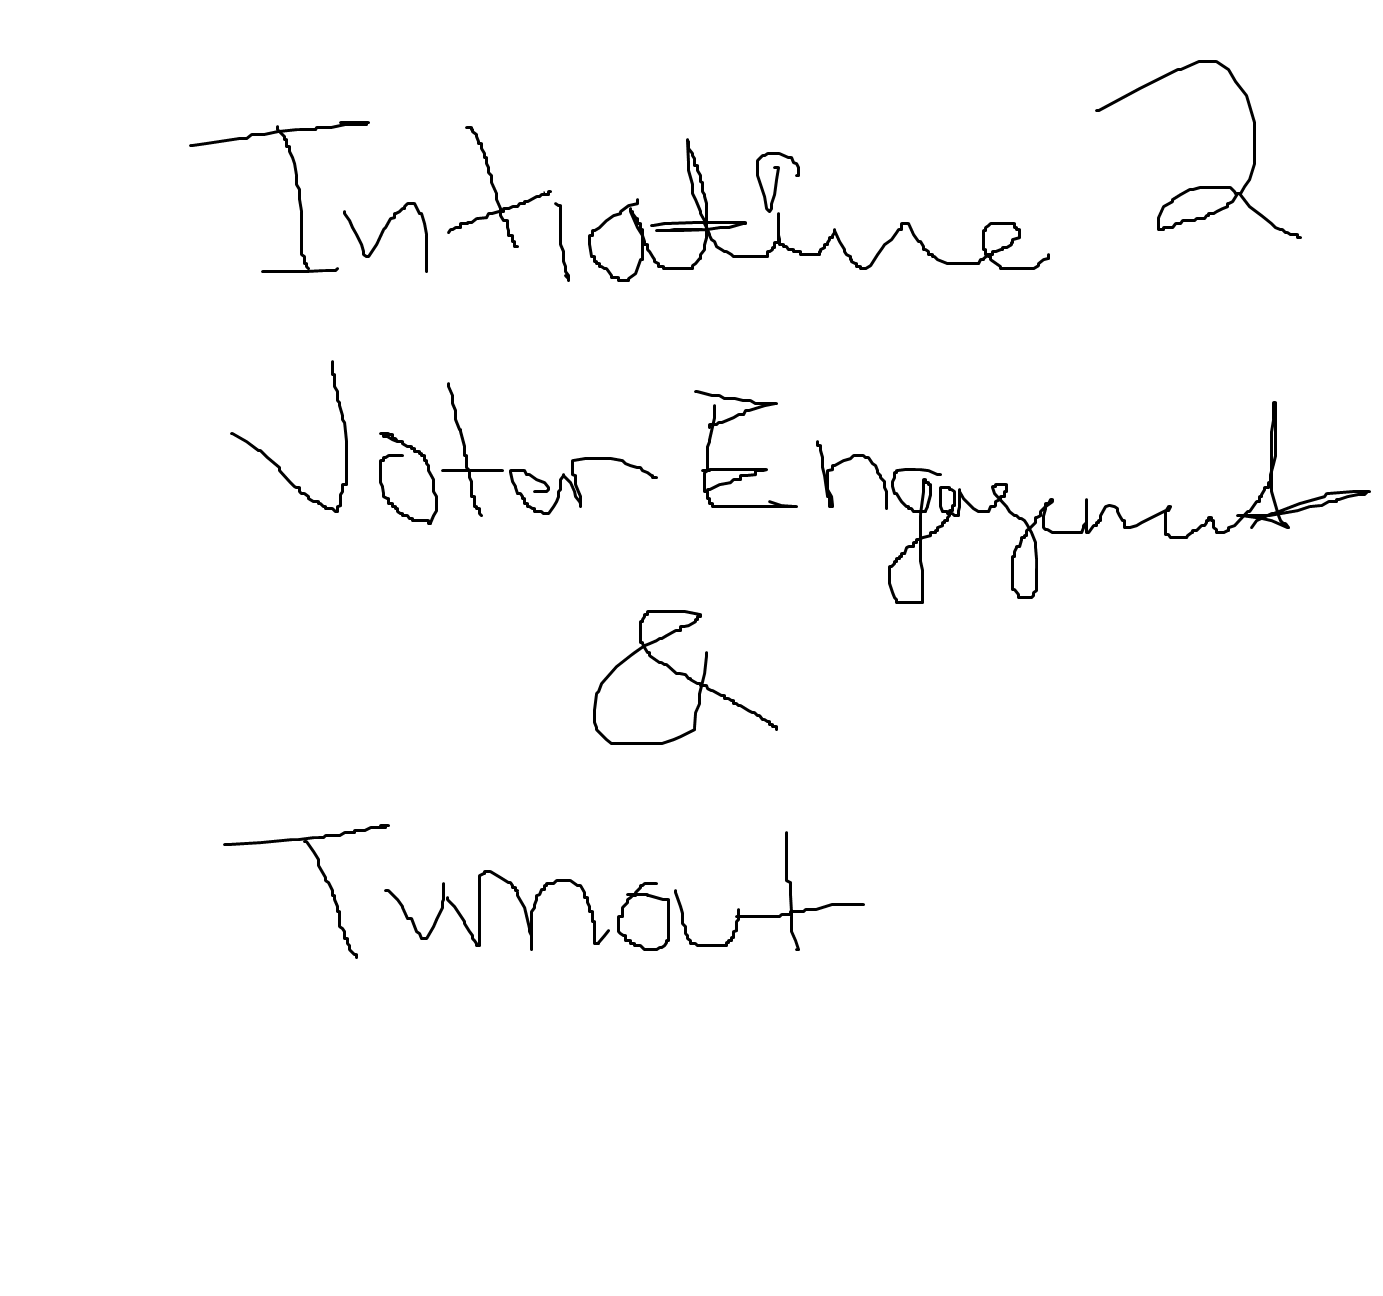 Intiative 2
Voter Engagement
&
Turnout